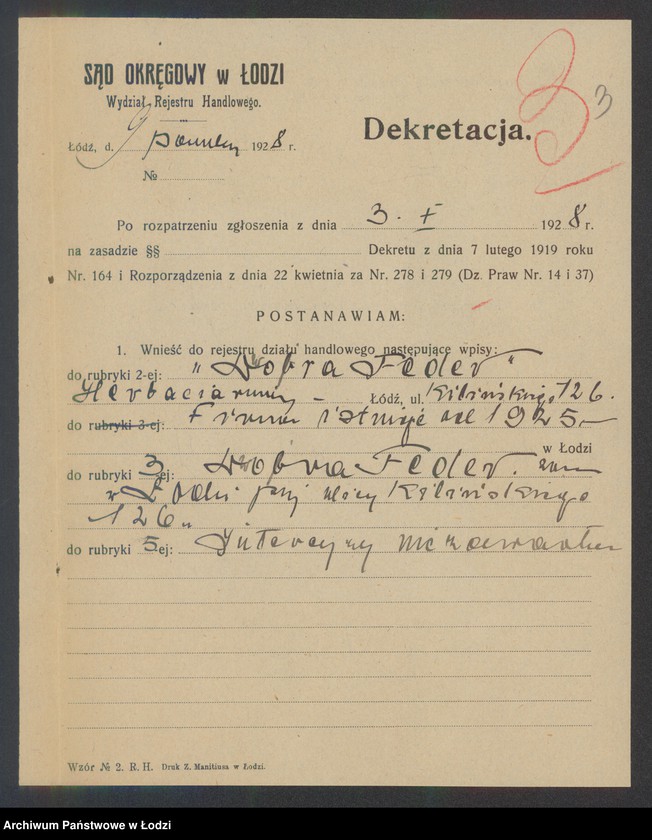 SĄD OKRĘGOWY w ŁODZI
Wydział Rejestru Handlowego.
3 3
Dekretacja.
Łódź, d. 9 1928 r.
№
Po rozpatrzeniu zgłoszenia z dnia 3. I 1928 r.
na zasadzie §§ Dekretu z dnia 7 lutego 1919 roku
Nr. 164 i Rozporządzenia z dnia 22 kwietnia za Nr. 278 i 279 (Dz. Praw Nr. 14 i 37)
POSTANAWIAM:
1. Wnieść do rejestru działu handlowego następujące wpisy:
do rubryki 2-ej: "Dwojra Feder"
Herbaciarnia – Łódź, ul. Kilińskiego 126.
do rubryki 3-ej: Firma istnieje od 1925.–
w Łodzi
do rubryki 3ej: Dwojra Feder. zam
w Łodzi przy ulicy Kilińskiego
126„
do rubryki 5ej: Intercyzy nie zawarła
Wzór № 2. R. H. Druk Z. Manitiusa w Łodzi.
Archiwum Państwowe w Łodzi